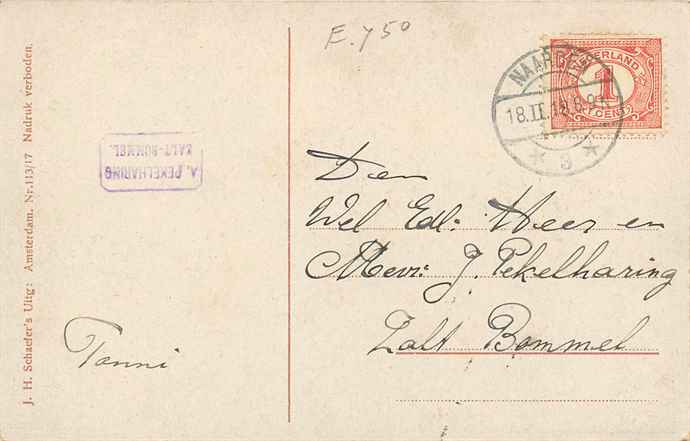 E. 750
NAARDEN
18.II.18.8-9
* 3 *
NEDERLAND
1
J. H. Schaefer's Uitg: Amsterdam. Nr. 113/17 Nadruk verboden.
A. PEKELHARING
ZALT-BOMMEL.
Den
Wel Ed: Heer en
Mevr: J. Pekelharing
Zalt Bommel
Tonni